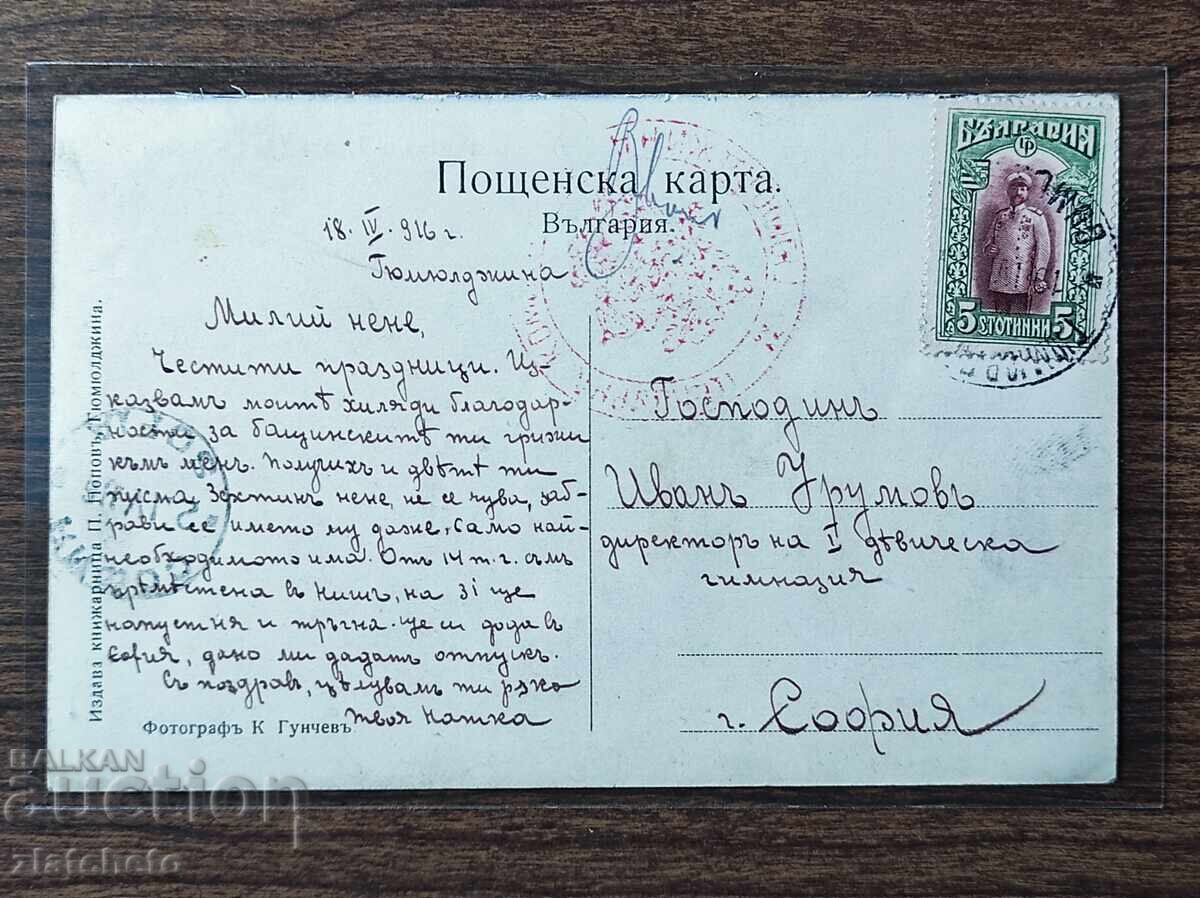 Пощенска карта.
България.
БЪЛГАРИЯ
5 СТОТИНКИ 5
18. IV. 916 г.
Гюмюлджина
Милий нене,
Честити праздници. Из-
казвамъ моитѣ хиляди благодар-
ности за бащинскитѣ ти грижи
къмъ менъ. Получихъ и двѣтѣ ти
писма. Зехтинъ нене, не се чува, заб-
рави се името му даже, само най-
необходимото има. Отъ 14 т. г. съмъ
прѣмѣстена въ Нишъ, на 31 ще
напустня и тръгна. Ще си дода въ
София, дано ми дадатъ отпускъ.
Съ поздравъ, цѣлувамъ ти рѫка
твоя Натка
Господинъ
Иванъ Урумовъ
директоръ на I дѣвическа
гимназия
г. София
Издава книжарница П. Поповъ, Гюмюлджина.
Фотографъ К Гунчевъ
BALKAN
auction
zlatcheto